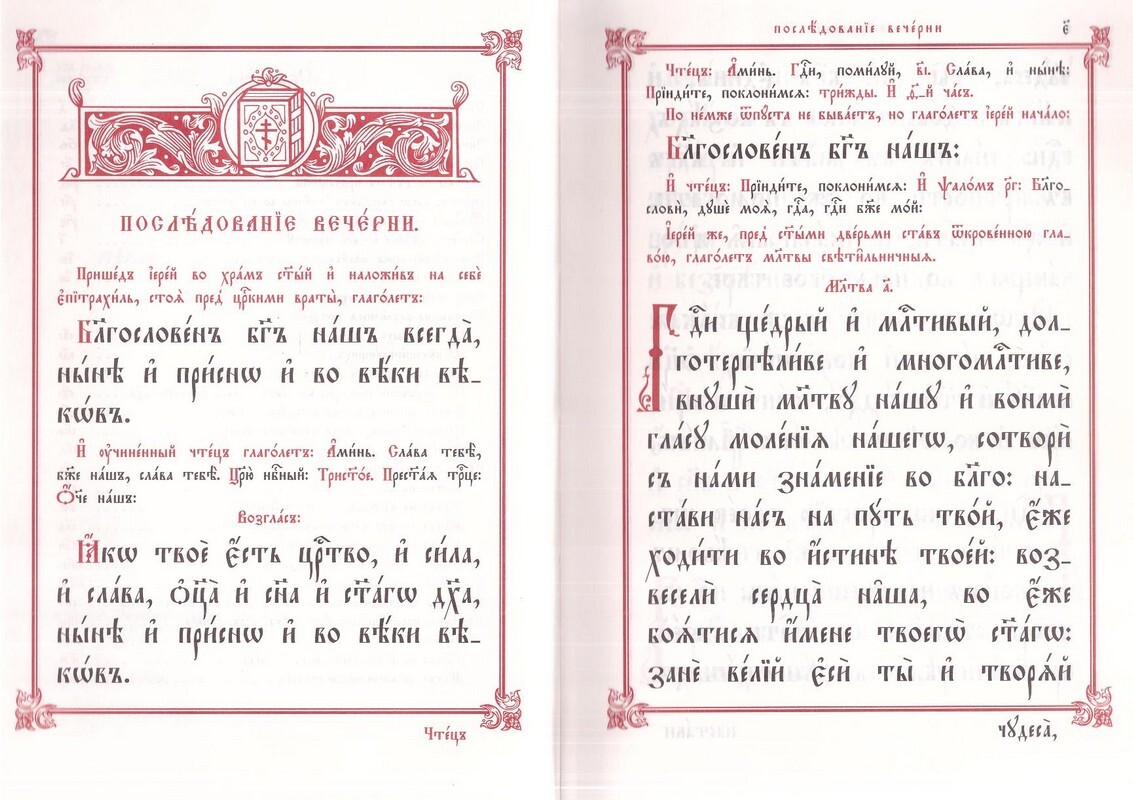 ПОСЛѢ́ДОВАНЇЕ ВЕЧЕ́РНИ.
Прише́дъ і҆ере́й во хра́мъ ст҃ы́й и҆ наложи́въ на себѐ
є҆пїтрахи́ль, стоѧ̀ пред̾ ца́рскими враты̀, глаго́летъ:
Бл҃гослове́нъ бг҃ъ на́шъ всегда̀,
ны́нѣ и҆ при́снѡ и҆ во вѣ́ки вѣ-
кѡ́въ.
И҆ ᲂу҆чине́нный чте́цъ глаго́летъ: А҆ми́нь. Сла́ва тебѣ̀,
бж҃е на́шъ, сла́ва тебѣ̀. Цр҃ю̀ нбⷭ҇ный: Трист҃о́е. Прест҃а́ѧ трⷪ҇це:
Ѻ҆́ч҃е на́шъ:
Возгла́съ:
Ꙗ҆́кѡ твоѐ є҆́сть црⷭ҇тво, и҆ си́ла,
и҆ сла́ва, ѻ҆ц҃а̀ и҆ сн҃а и҆ ст҃а́гѡ дх҃а,
ны́нѣ и҆ при́снѡ и҆ во вѣ́ки вѣ-
кѡ́въ.
Чте́цъ
ПОСЛѢ́ДОВАНЇЕ ВЕЧЕ́РНИ є҃
Чте́цъ: А҆ми́нь. Гдⷭ҇и, поми́лꙋй, в҃і. Сла́ва, и҆ ны́нѣ:
Прїиди́те, поклони́мсѧ: три́жды. И҆ ѳ҃-й ча́съ.
По не́мже ѿпꙋ́ста не быва́етъ, но глаго́летъ і҆ере́й нача́ло:
Бл҃гослове́нъ бг҃ъ на́шъ:
И҆ чте́цъ: Прїиди́те, поклони́мсѧ: И҆ ѱало́мъ р҃г: Бл҃го-
словѝ, дꙋшѐ моѧ̀, гдⷭ҇а, гдⷭ҇и бж҃е мо́й:
І҆ере́й же, пред̾ ст҃ы́ми две́рьми ста́въ ѿкрове́нною гла-
во́ю, глаго́летъ мл҃твы свѣти́льничныѧ.
Мл҃тва а҃.
Гдⷭ҇и ще́дрый и҆ млⷭ҇тивый, дол-
готерпѣли́ве и҆ многомлⷭ҇тиве,
внꙋшѝ мл҃твꙋ на́шꙋ и҆ вонмѝ
гла́сꙋ моле́нїѧ на́шегѡ, сотворѝ
съ на́ми зна́менїе во бл҃го: на-
ста́ви на́съ на пꙋ́ть тво́й, є҆́же
ходи́ти во и҆́стинѣ твое́й: воз-
веселѝ сердца̀ на̑ша, во є҆́же
боѧ́тисѧ и҆́мене твоегѡ̀ ст҃а́гѡ:
занѐ ве́лїй є҆сѝ ты̀ и҆ творѧ́й
чꙋдеса̀,